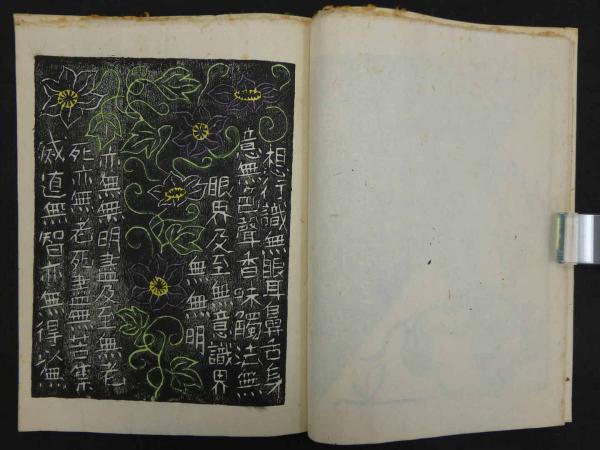 想行識無眼耳鼻舌身
意無色聲香味觸法無
眼界及至無意識界
無無明
亦無無明盡及至無老
死亦無老死盡無苦集
滅道無智亦無得以無